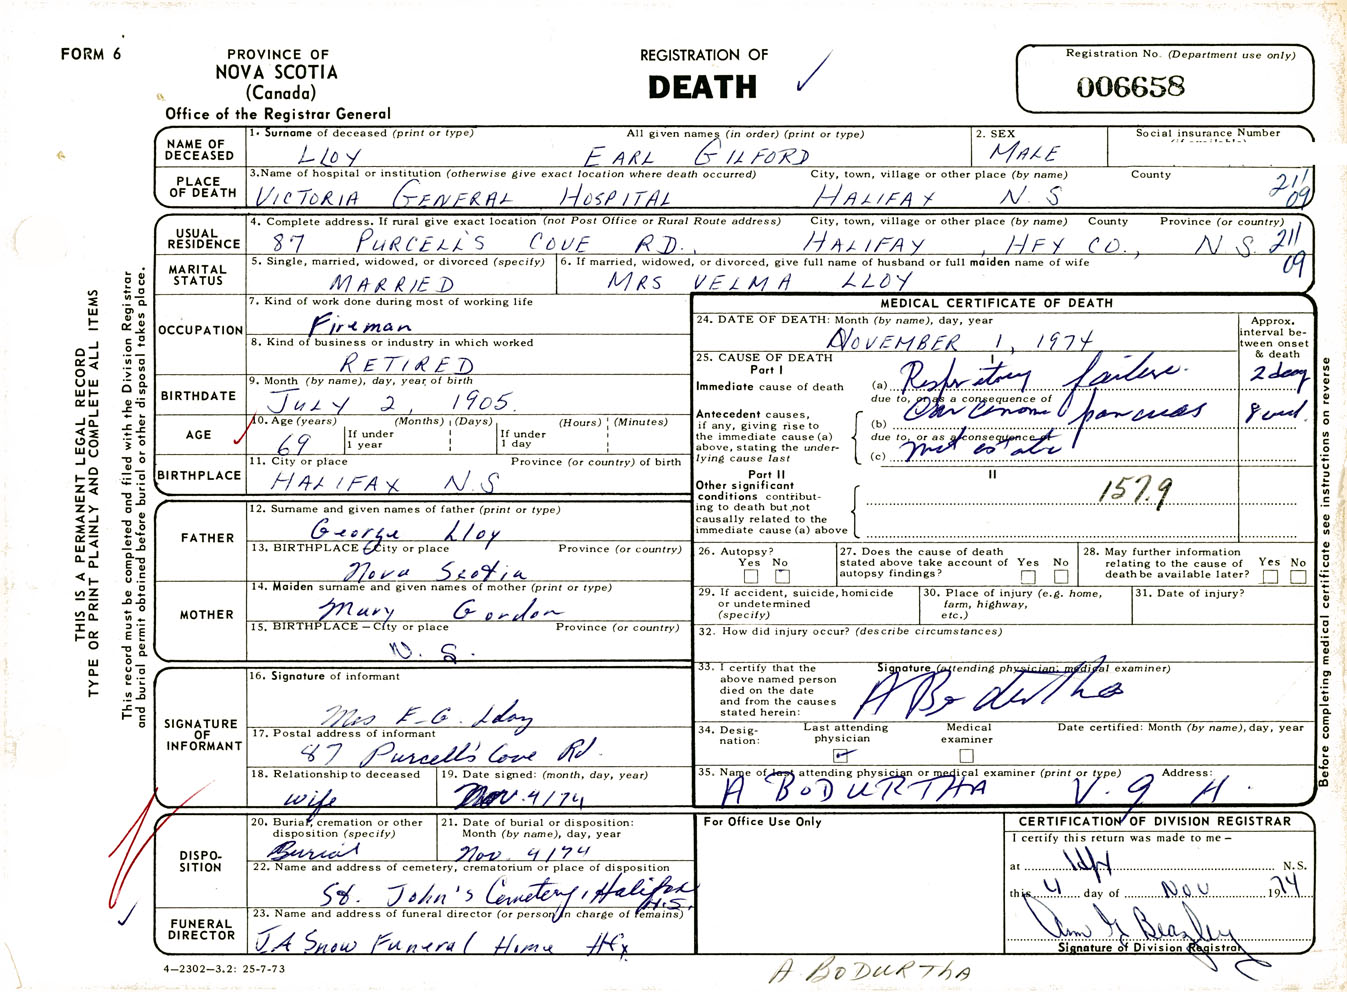 FORM 6
PROVINCE OF
NOVA SCOTIA
(Canada)
Office of the Registrar General
REGISTRATION OF
DEATH
Registration No. (Department use only)
006658
NAME OF DECEASED
1. Surname of deceased (print or type) All given names (in order) (print or type)
LLOY EARL GILFORD
2. SEX
MALE
Social insurance Number
PLACE OF DEATH
3. Name of hospital or institution (otherwise give exact location where death occurred) City, town, village or other place (by name) County
VICTORIA GENERAL HOSPITAL HALIFAX N.S
211
09
USUAL RESIDENCE
4. Complete address. If rural give exact location (not Post Office or Rural Route address) City, town, village or other place (by name) County Province (or country)
87 PURCELL'S COVE RD., HALIFAX, HFX CO., N.S.
211
09
MARITAL STATUS
5. Single, married, widowed, or divorced (specify)
MARRIED
6. If married, widowed, or divorced, give full name of husband or full maiden name of wife
MRS VELMA LLOY
OCCUPATION
7. Kind of work done during most of working life
Fireman
8. Kind of business or industry in which worked
RETIRED
BIRTHDATE
9. Month (by name), day, year of birth
JULY 2, 1905.
AGE
10. Age (years) (Months) (Days) (Hours) (Minutes)
69 If under 1 year If under 1 day
BIRTHPLACE
11. City or place Province (or country) of birth
HALIFAX N.S
FATHER
12. Surname and given names of father (print or type)
George Lloy
13. BIRTHPLACE - City or place Province (or country)
Nova Scotia
MOTHER
14. Maiden surname and given names of mother (print or type)
Mary Gordon
15. BIRTHPLACE - City or place Province (or country)
N. S.
SIGNATURE OF INFORMANT
16. Signature of informant
Mrs E. G. Lloy
17. Postal address of informant
87 Purcell's Cove Rd.
18. Relationship to deceased
wife
19. Date signed: (month, day, year)
Nov. 4/74
DISPOSITION
20. Burial, cremation or other disposition (specify)
Burial
21. Date of burial or disposition: Month (by name), day, year
Nov. 4/74
22. Name and address of cemetery, crematorium or place of disposition
St. John's Cemetery, Halifax
N.S.
FUNERAL DIRECTOR
23. Name and address of funeral director (or person in charge of remains)
J.A Snow Funeral Home Hfx
MEDICAL CERTIFICATE OF DEATH
24. DATE OF DEATH: Month (by name), day, year
NOVEMBER 1, 1974
Approx. interval between onset & death
25. CAUSE OF DEATH
Part I
Immediate cause of death
(a) Respiratory failure 2 days
due to, or as a consequence of
Antecedent causes, if any, giving rise to the immediate cause (a) above, stating the underlying cause last
(b) Carcinoma pancreas
due to, or as a consequence of
(c)
Part II
Other significant conditions contributing to death but not causally related to the immediate cause (a) above
II
157.9
26. Autopsy?
Yes No
27. Does the cause of death stated above take account of autopsy findings?
Yes No
28. May further information relating to the cause of death be available later?
Yes No
29. If accident, suicide, homicide or undetermined (specify)
30. Place of injury (e.g. home, farm, highway, etc.)
31. Date of injury?
32. How did injury occur? (describe circumstances)
33. I certify that the above named person died on the date and from the causes stated herein:
Signature (attending physician; medical examiner)
A Bodurtha
34. Designation:
Last attending physician
Medical examiner
Date certified: Month (by name), day, year
35. Name of last attending physician or medical examiner (print or type) Address:
A BODURTHA V. G H.
For Office Use Only
CERTIFICATION OF DIVISION REGISTRAR
I certify this return was made to me -
at Hfx N.S.
this 4 day of Nov 1974
Ann G Beazley
Signature of Division Registrar
4-2302-3.2: 25-7-73
A BODURTHA
THIS IS A PERMANENT LEGAL RECORD
TYPE OR PRINT PLAINLY AND COMPLETE ALL ITEMS
This record must be completed and filed with the Division Registrar
and burial permit obtained before burial or other disposal takes place.
Before completing medical certificate see instructions on reverse